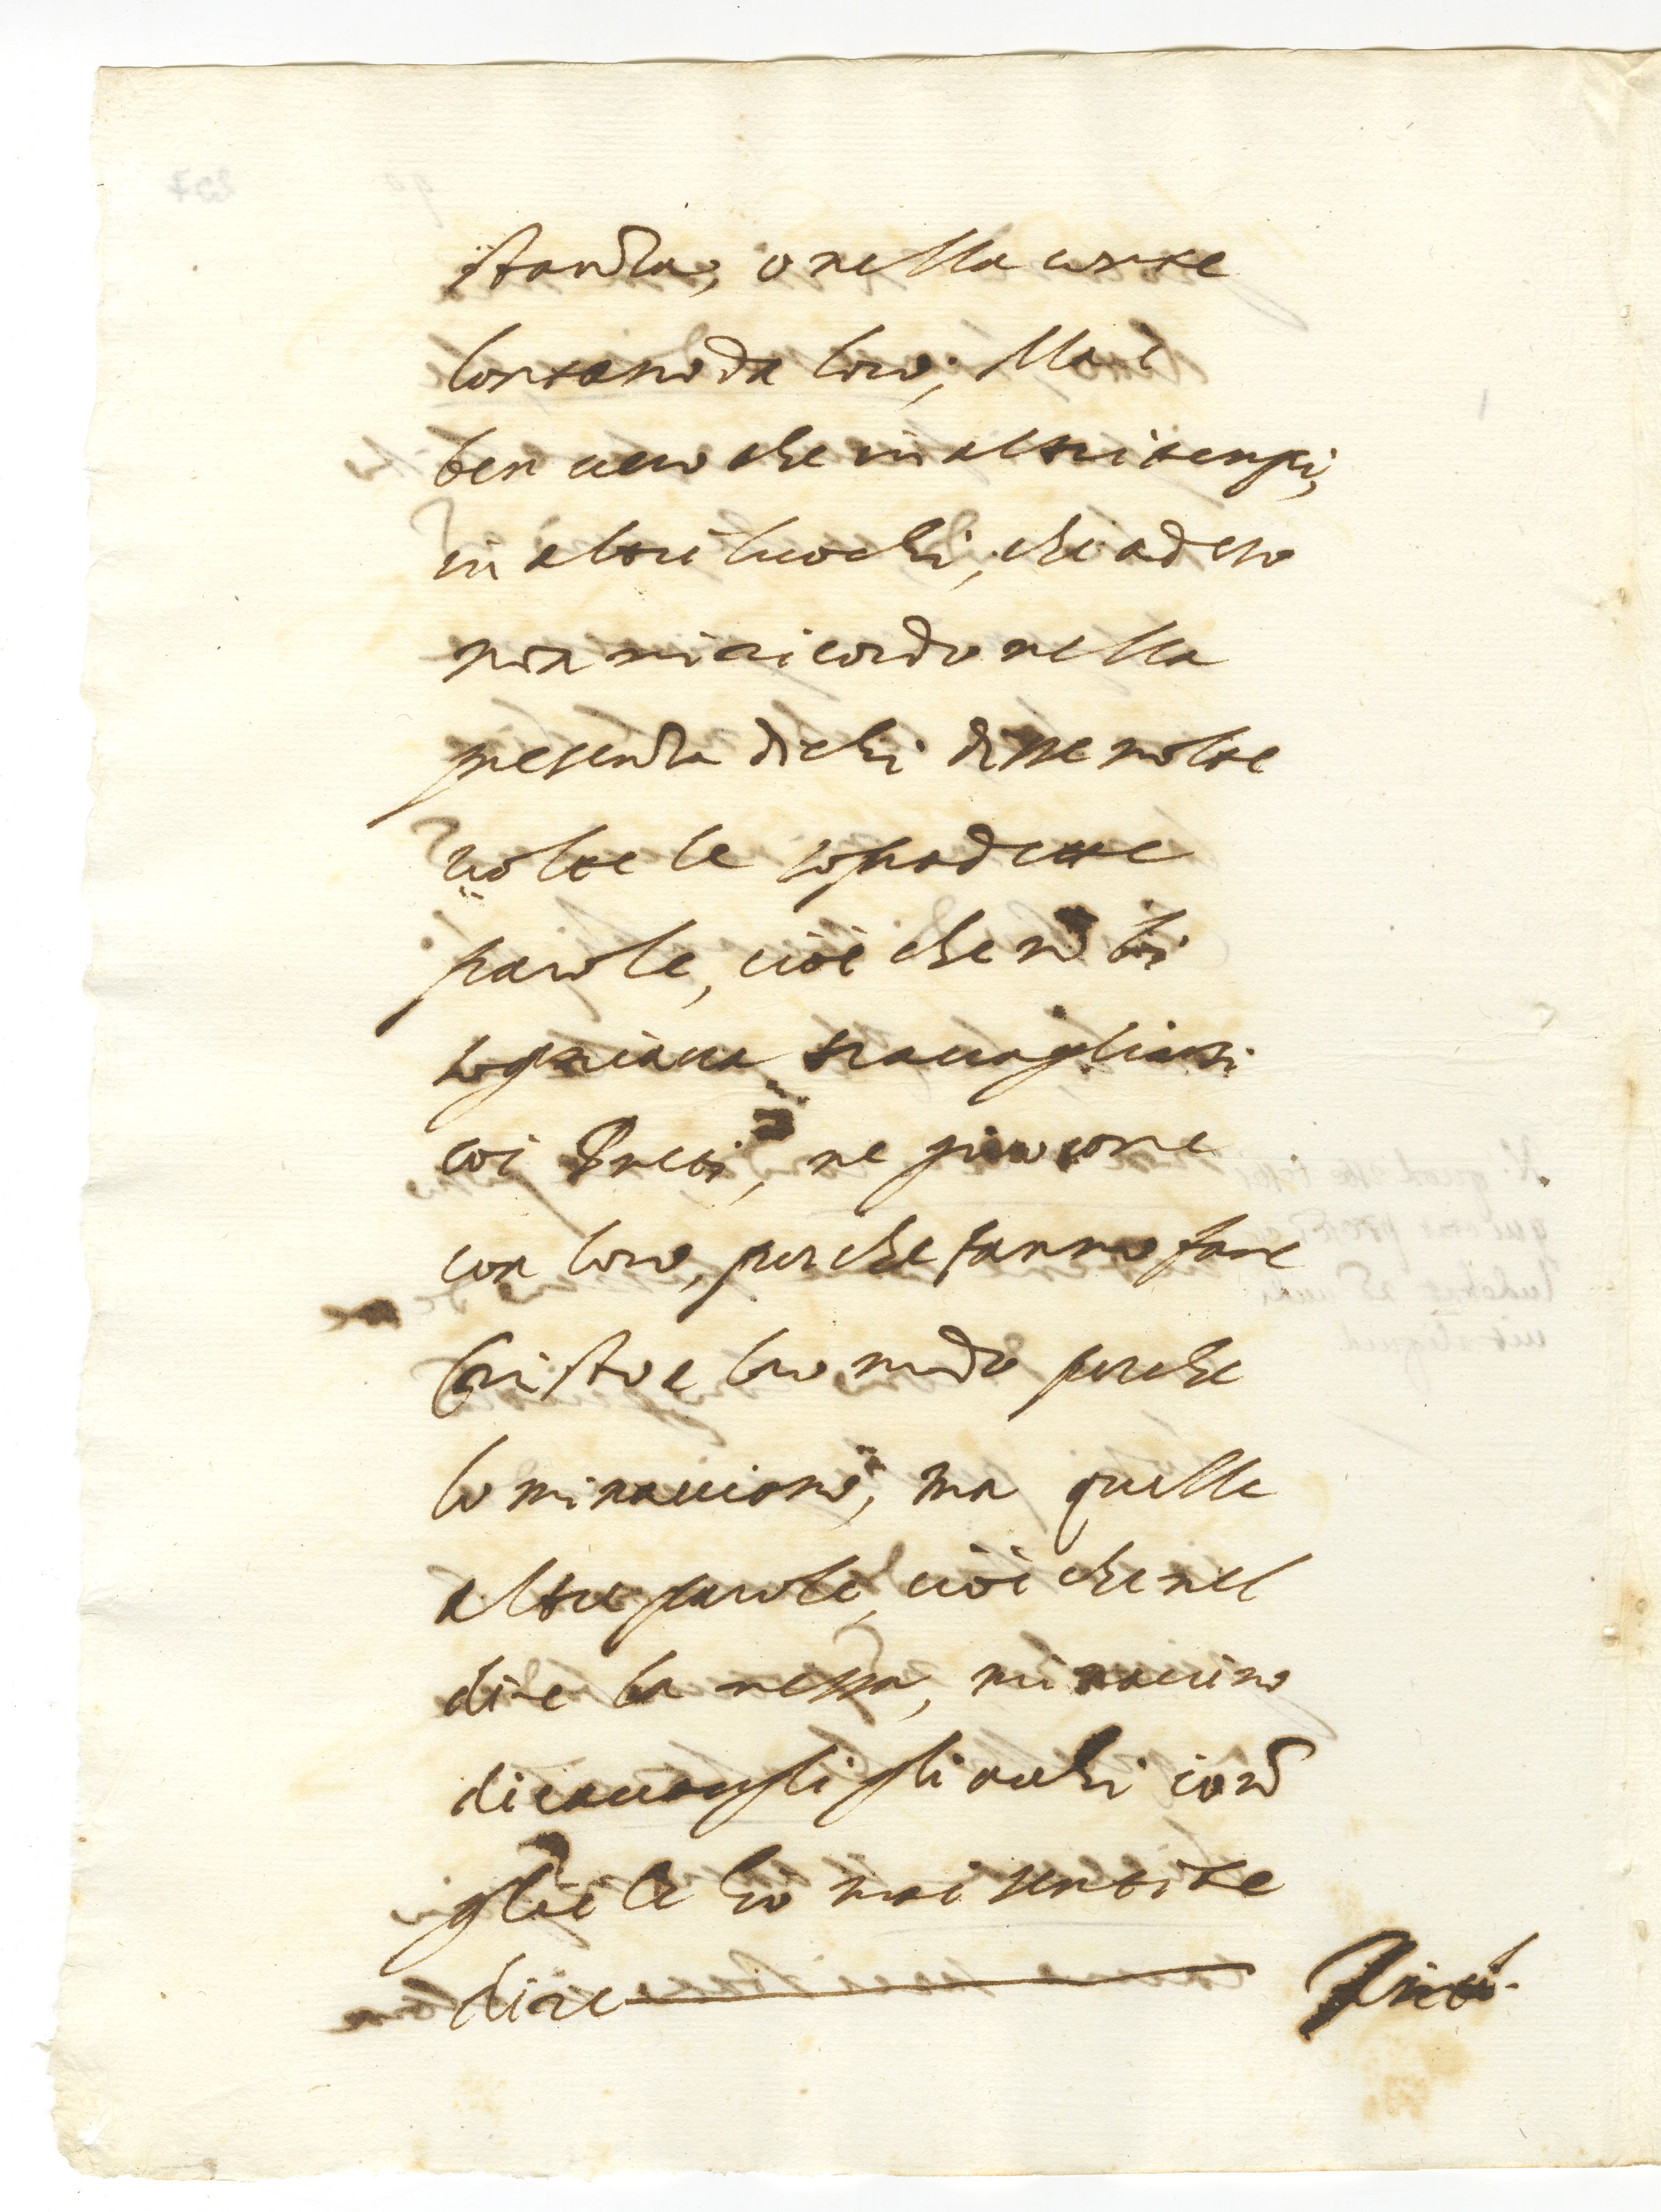 stanza, o nella corte
lontano da loro; Ma è
ben vero che in altri tempi,
in altri luochi, che adesso
non mi ricordo nella
presenza di chi disse molte
volte le sopradette
parole, cioè che nõ bi
sogniava travagliarsi
coi Preti, ne
con loro, perche fanno fare
Cristo a loro modo perche
lo minacciano, ma quelle
altre parole, cioè che nel
dire la messa, minaccino
di cavargli gli occhi io nõ
gliele hò mai sentite
dire